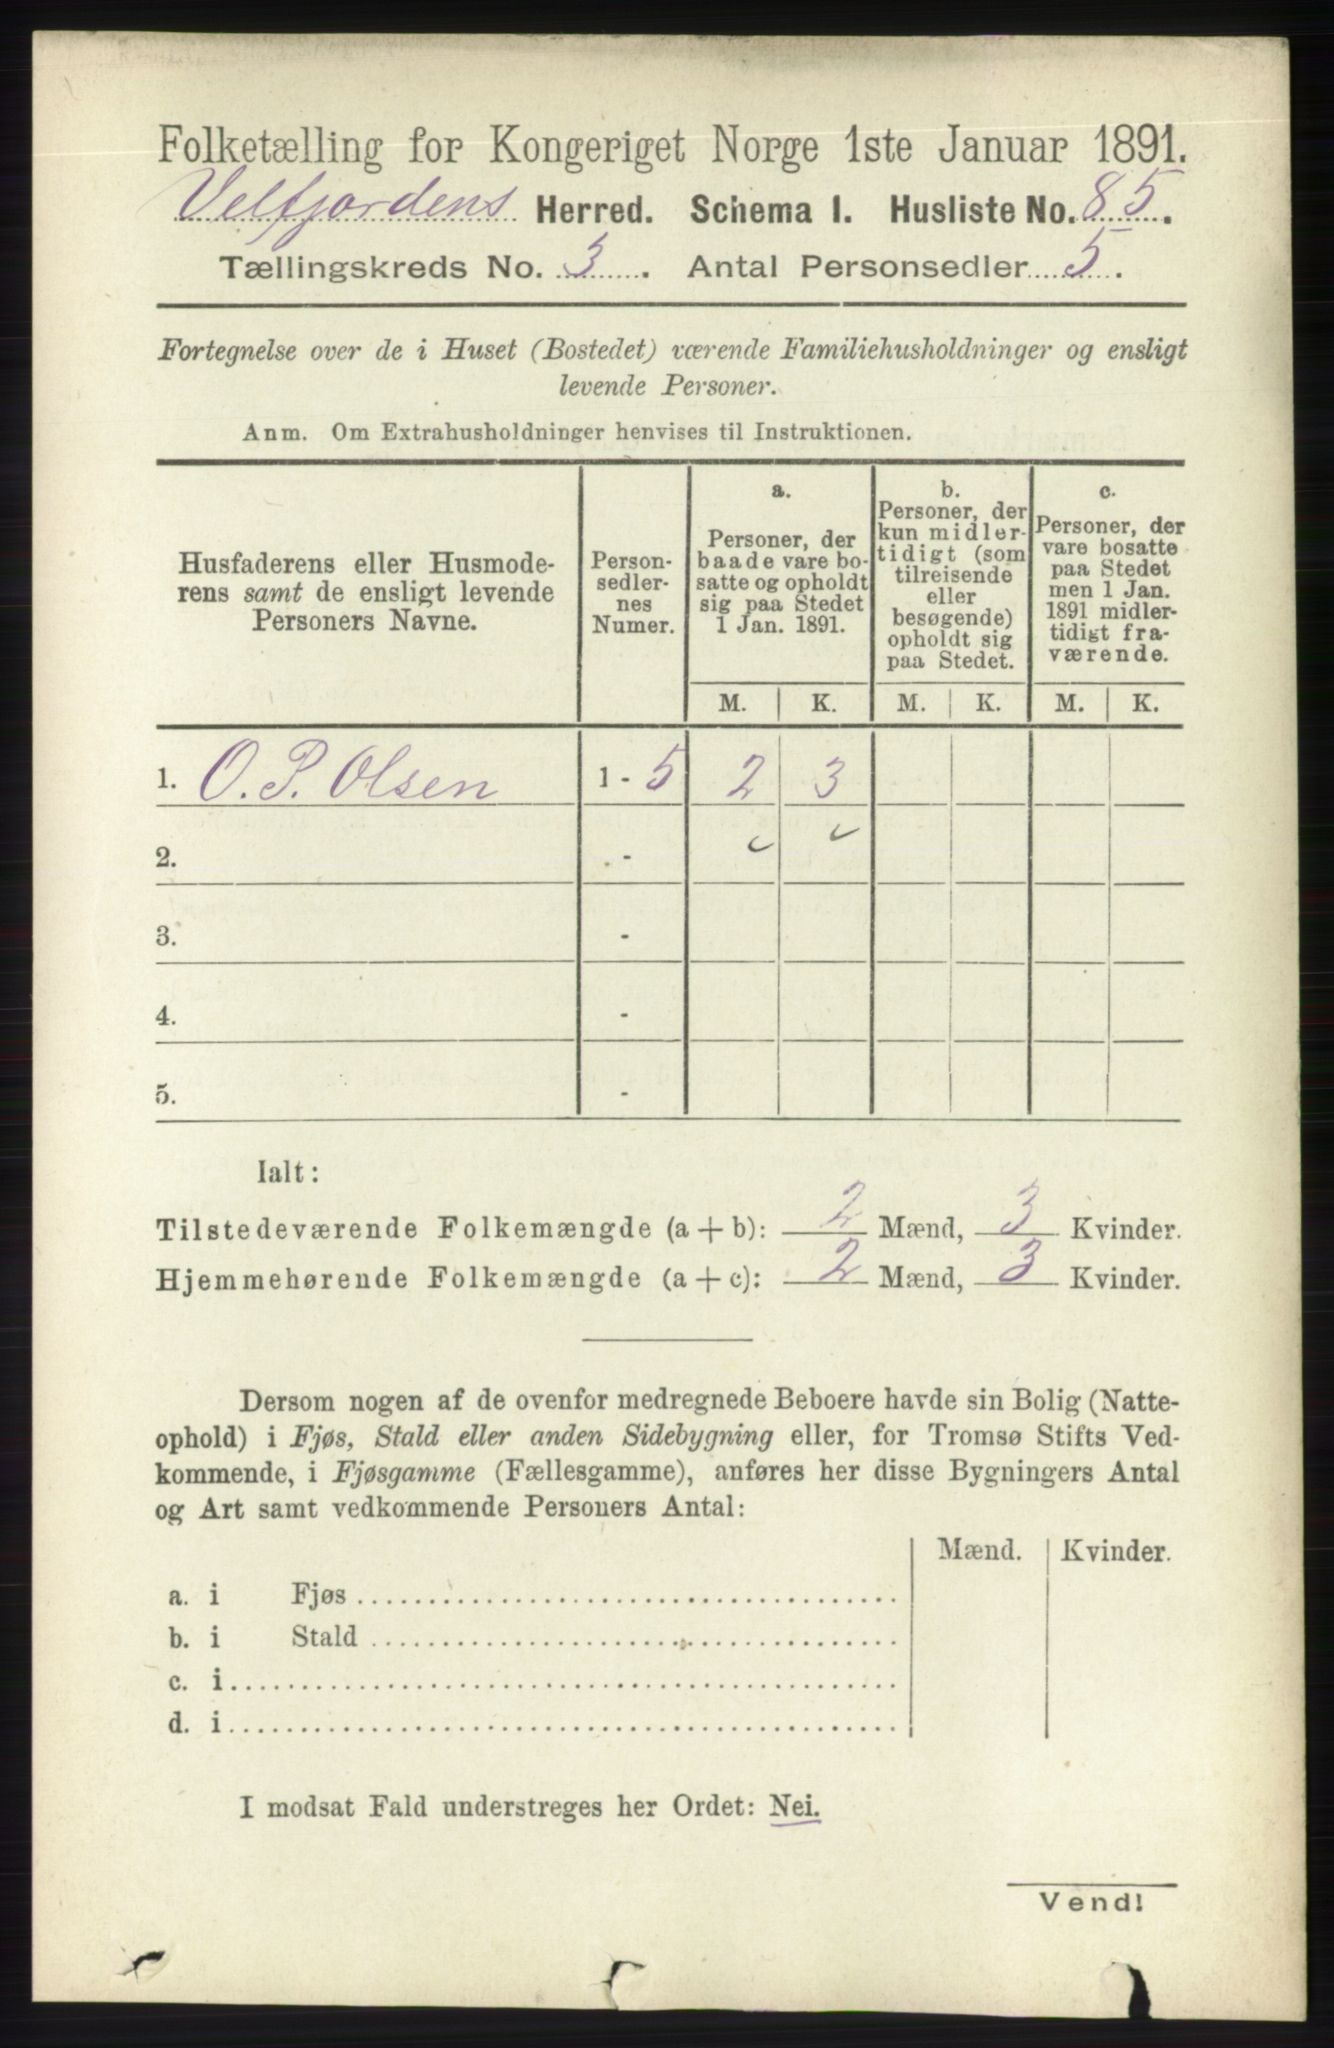 Folketælling for Kongeriget Norge 1ste Januar 1891.
Velfjordens Herred. Schema I. Husliste No. 85.
Tællingskreds No. 3. Antal Personsedler 5.
Fortegnelse over de i Huset (Bostedet) værende Familiehusholdninger og ensligt
levende Personer.
Anm. Om Extrahusholdninger henvises til Instruktionen.
Husfaderens eller Husmode-
rens samt de ensligt levende
Personers Navne.
Person-
sedler-
nes
Numer.
a.
Personer, der
baade vare bo-
satte og opholdt
sig paa Stedet
1 Jan. 1891.
b.
Personer, der
kun midler-
tidigt (som
tilreisende
eller
besøgende)
opholdt sig
paa Stedet.
c.
Personer, der
vare bosatte
paa Stedet
men 1 Jan.
1891 midler-
tidigt fra-
værende.
M. K. M. K. M. K.
1. O. P. Olsen 1 - 5 2 3
2. -
3. -
4. -
5. -
Ialt:
Tilstedeværende Folkemængde (a + b): 2 Mænd, 3 Kvinder.
Hjemmehørende Folkemængde (a + c): 2 Mænd, 3 Kvinder.
Dersom nogen af de ovenfor medregnede Beboere havde sin Bolig (Natte-
ophold) i Fjøs, Stald eller anden Sidebygning eller, for Tromsø Stifts Ved-
kommende, i Fjøsgamme (Fællesgamme), anføres her disse Bygningers Antal
og Art samt vedkommende Personers Antal:
Mænd. Kvinder.
a. i Fjøs
b. i Stald
c. i
d. i
I modsat Fald understreges her Ordet: Nei.
Vend!